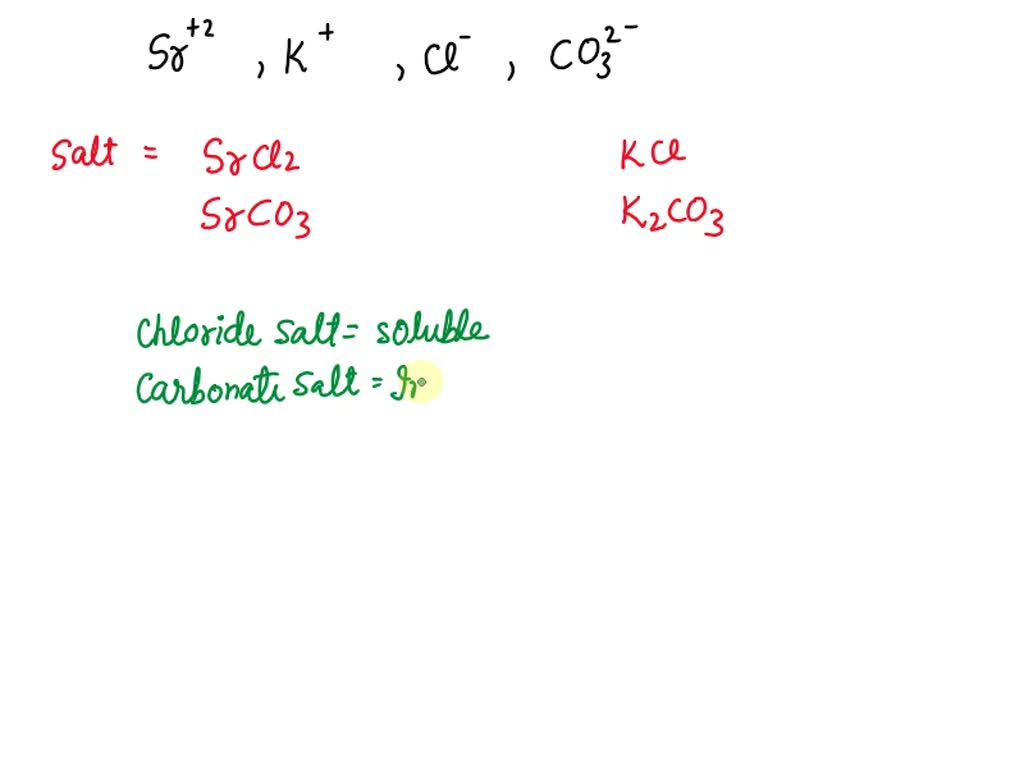 Sr⁺², K⁺, Cl⁻, CO₃²⁻
Salt = SrCl₂ KCl
SrCO₃ K₂CO₃
Chloride salt = soluble
Carbonate salt = In